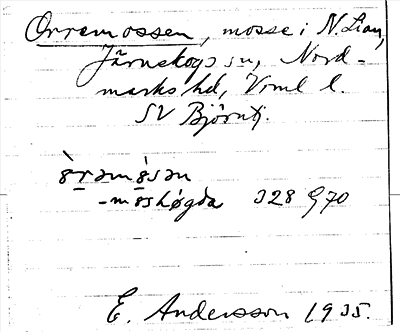 Orremossen, mosse i N. Lian,
Järnskogs sn, Nord-
marks hd, Vrml l.
SV Björntj.
-møshøgda 328 970
E. Andersson 1935.